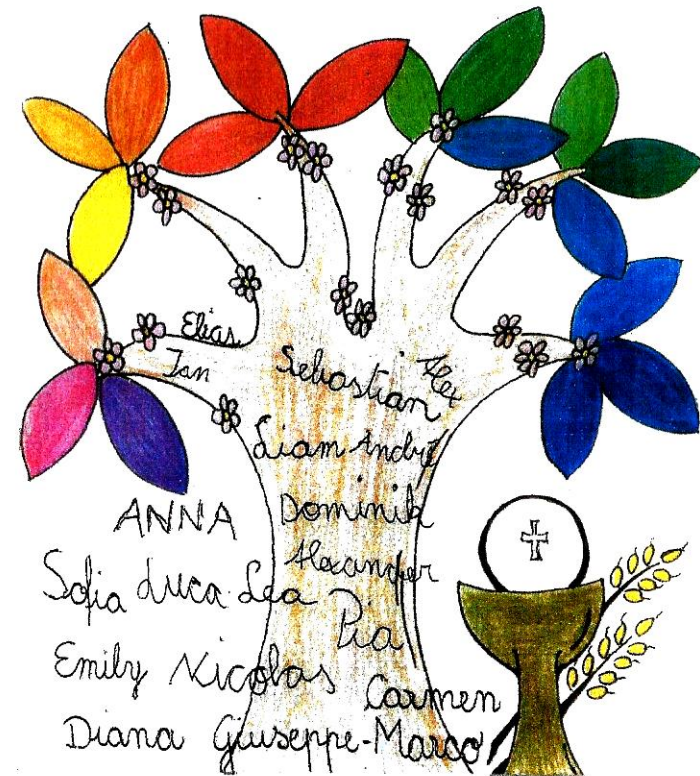 Elias
Jan
Sebastian
Alex
Liam André
ANNA Dominik
Alexander
Sofia Luca Lea
Pia
Emily Nicolas
Carmen
Diana Giuseppe-Marco